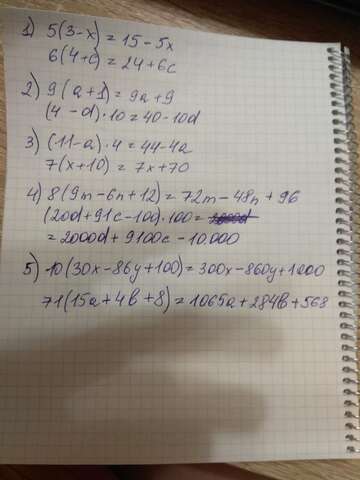 1) 5(3-x) = 15-5x
6(4+c) = 24+6c
2) 9(a+1) = 9a+9
(4-d)·10 = 40-10d
3) (11-a)·4 = 44-4a
7(x+10) = 7x+70
4) 8(9m-6n+12) = 72m-48n+96
(20d+91c-100)·100 =
= 2000d+9100c-10.000
5) 10(30x-86y+100) = 300x-860y+1000
71(15a+4b+8) = 1065a+284b+568